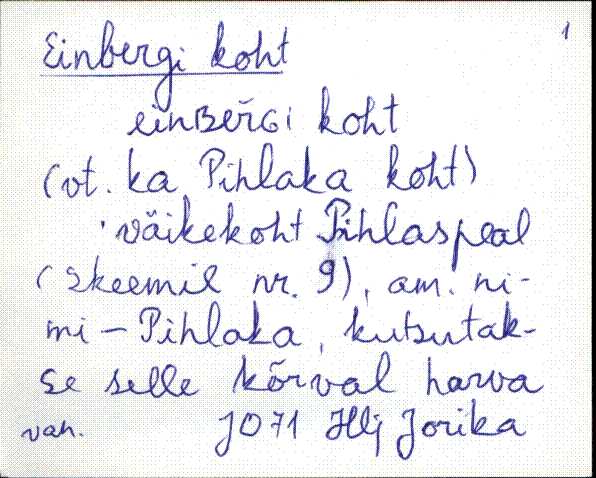 1
Einbergi koht
einBErGi koht
(vt. ka Pihlaka koht)
väikekoht Pihlaspeal
(skeemil nr. 9), am. ni-
mi - Pihlaka, kutsutak-
se selle kõrval harva
van. JO 71 Hlj Jorika